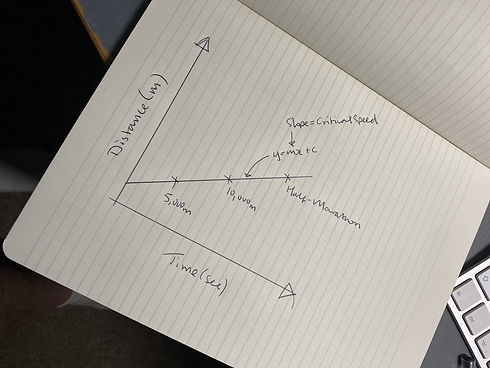 Distance (m)
Slope = Critical Speed
y = mx + c
5,000m
10,000m
Half-Marathon
Time (sec)